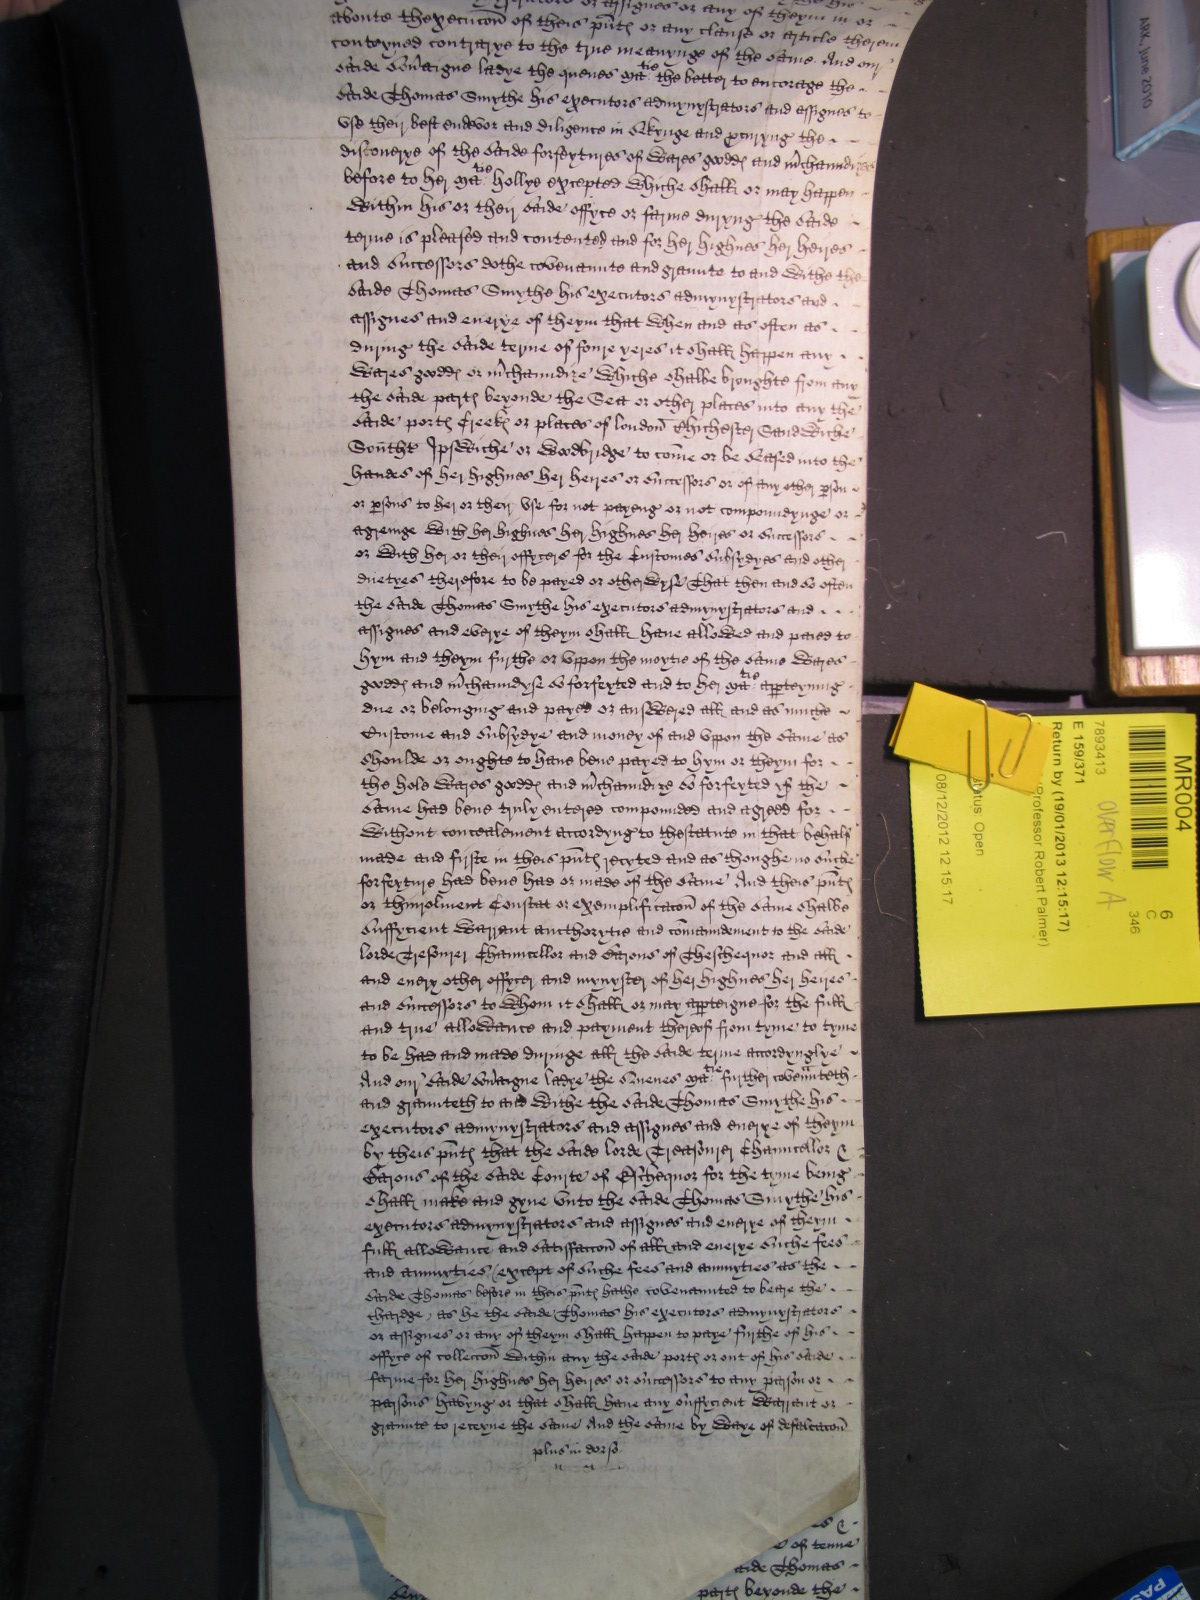 executors or assignes or any of theym in or
aboute thexecucon of theis pntes or any clause or article therein
conteyned contrarye to the true meanynge of the same. And our
saide Sovaigne ladye the quenes matie the better to encorage the
saide Thomas Smythe his executors admynystrators and assignes to
use their best endevor and diligence in sekynge and procuryng the
discoverye of the saide forfeytures of wares goodes and mchaundizes
before to her matie hollye excepted whiche shall or may happen
within his or their saide offyce or farme duryng the saide
terme is pleased and contented and for her highnes her heires
and successors dothe covenaunte and graunte to and withe the
saide Thomas Smythe his executors admynystrators and
assignes and everye of theym that when and as often as
during the saide terme of foure yeres it shall happen any
wares goodes or mchaundize whiche shalbe broughte from any
the saide partes beyonde the Sea or other places into any the
saide portes Creekes or places of london Chichester Sandwiche
Southt Ipswiche or Woodbridge to come or be seased into the
handes of her highnes her heires or successors or of any other pson
or psons to her or their use for not payeng or not compoundynge or
agreinge with her highnes her highnes her heires or successors
or with her or their offycers for the Customes subsydyes and other
dueties therefore to be payed or otherwyse That then and so often
the saide Thomas Smythe his executors admynystrators and
assignes and everye of theym shall have allowed and paied to
hym and theym furthe or uppon the moytie of the same wares
goodes and mchaundyse so forfeyted and to her matie appteyning
due or belonging and payed or answered all and as muche
Custome and subsydye and money of and uppon the same as
shoulde or oughte to have bene payed to hym or theym for
the hole wares goodes and mchaundize so forfeyted yf the
same had bene truly entered compounded and agreed for
without concealement accordyng to thestatute in that behalf
made and firste in theis pntes recyted and as thoughe no suche
forfeyture had bene had or made of the same And theis pntes
or thinrolment Constat or exemplificacon of the same shalbe
suffycient warrant aucthorytie and comaundement to the saide
lorde Tresourer Chauncellor and barons of Theschequor and all
and every other offycer and mynyster of her highnes her heires
and successors to whom it shall or may appteigne for the full
and true allowance and payment thereof from tyme to tyme
to be had and made duringe all the saide terme accordynglye
And our saide Sovaigne ladye the Quenes matie further covenuteth
and graunteth to and withe the saide Thomas Smythe his
executors admynystrators and assignes and everye of theym
by theis pntes that the saide lorde Treasourer Chauncellor &
Barons of the saide Courte of Eschequor for the tyme being
shall make and gyve unto the saide Thomas Smythe his
executors admynystrators and assignes and everye of theym
full allowance and satisfaccon of all and everye suche fees
and annuyties (except of suche fees and annuyties as the
saide Thomas before in theis pntes hathe covenaunted to beare the
chardge) as he the saide Thomas his executors admynystrators
or assignes or any of theym shall happen to paye furthe of his
offyce of colleccon within any the saide portes or out of his saide
farme for her highnes her heires or successors to any parson or
parsons havyng or that shall have any suffycient warrant or
graunte to receyve the same And the same by waye of defalcacon
plus in dorso
of tenne
saide Thomas
partes beyonde the
ARK, June 2010
MR004
6
C
346
7893413
overflow A
E 159/371
Return by (19/01/2013 12:15:17)
(Professor Robert Palmer)
status: Open
08/12/2012 12:15:17